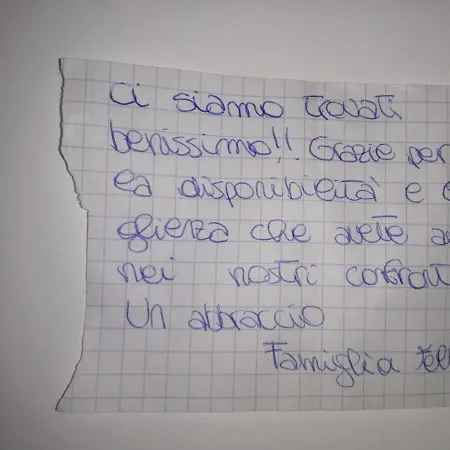 Ci siamo trovati
benissimo!! Grazie per
la disponibilità e
glienza che avete
nei nostri confront
Un abbraccio
Famiglia